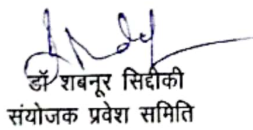 डॉ शबनूर सिद्दीकी
संयोजक प्रवेश समिति